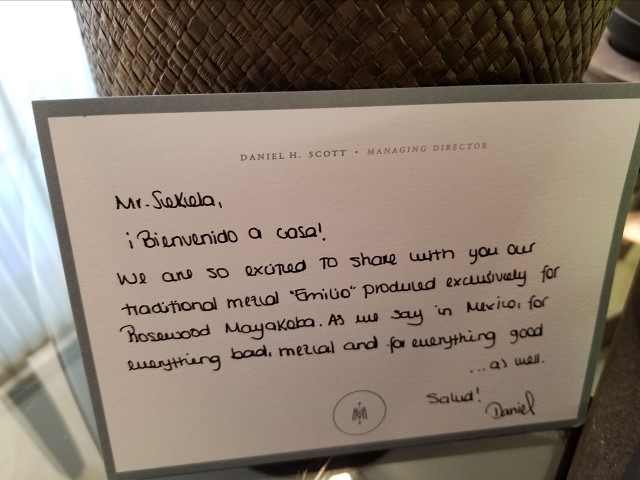 DANIEL H. SCOTT • MANAGING DIRECTOR
Mr. Siekiela,
¡Bienvenido a casa!
We are so excited to share with you our
traditional mezcal "Emilio" produced exclusively for
Rosewood Mayakoba. As we say in Mexico, for
everything bad, mezcal and for everything good
...as well.
Salud!
Daniel